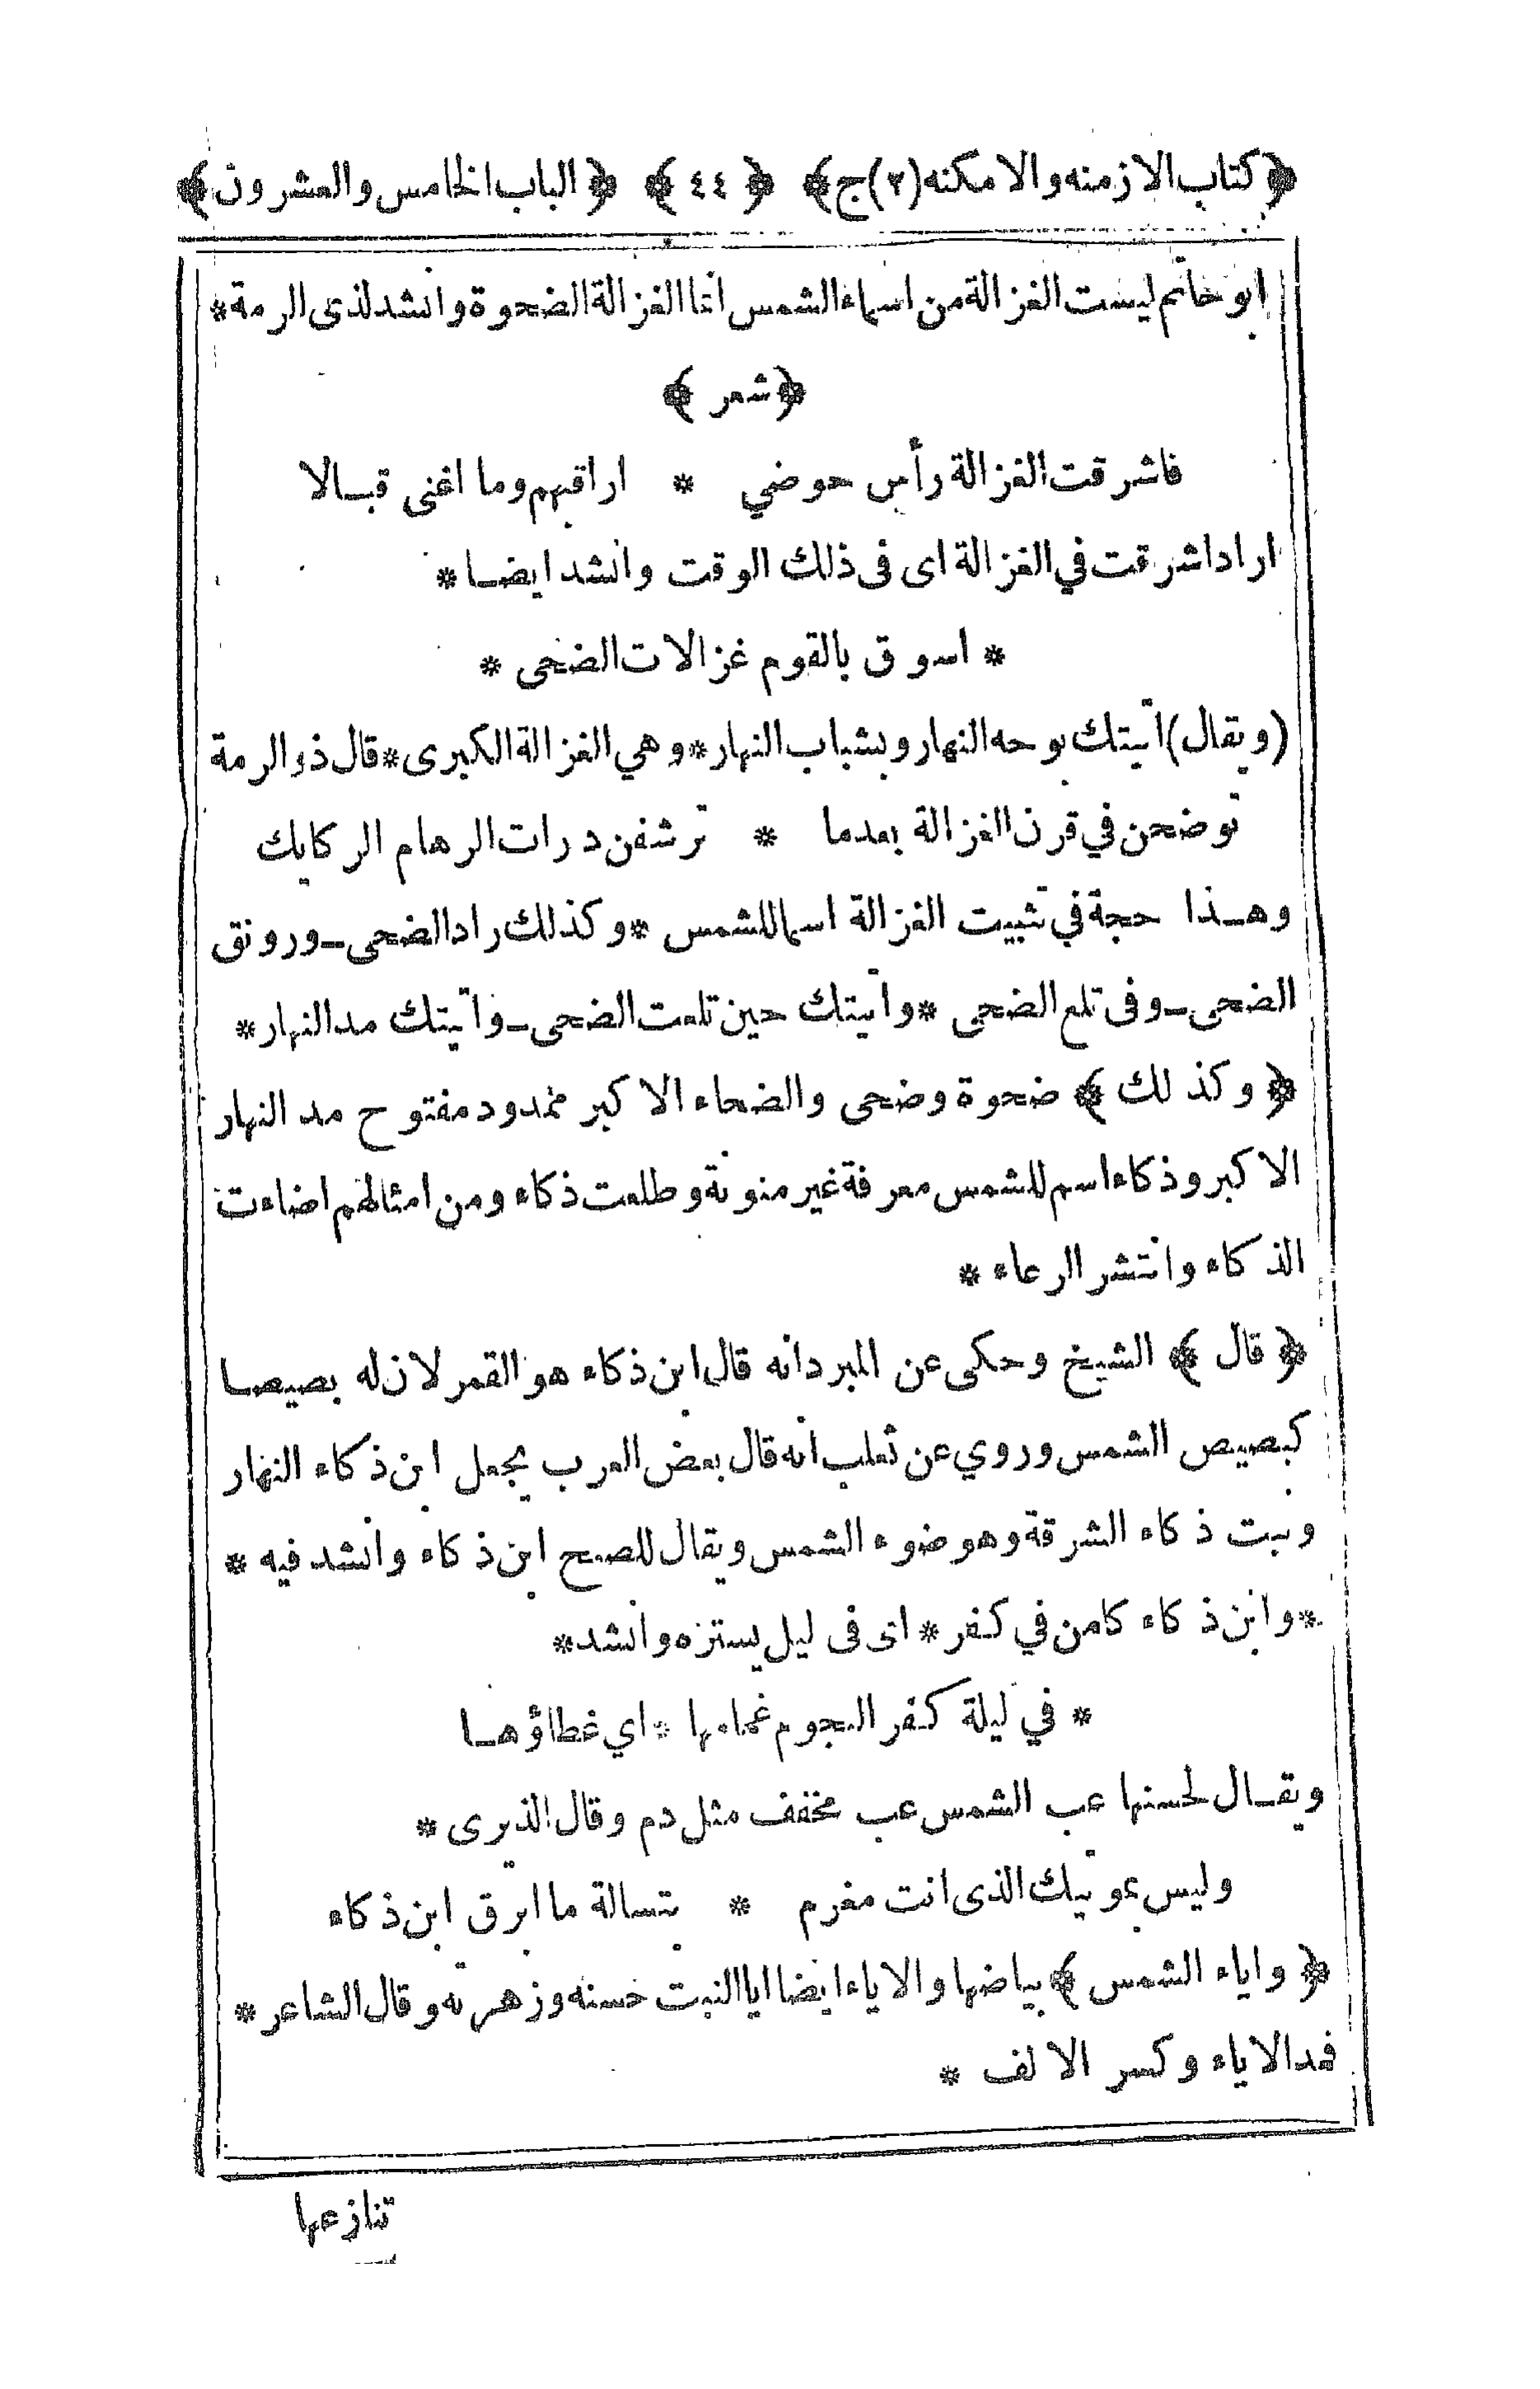 ﴿كتاب الازمنه والامكنه (٢) ج﴾ ﴿٤٤﴾ ﴿الباب الخامس والعشرون﴾
ابو حاتم ليست الغزالة من اسماء الشمس انما الغزالة الضحوة وانشد لذى الرمة*
﴿شعر﴾
فاشرقت الغزالة رأس حوضي * اراقبهم وما اغنى قبالا
اراد اشرقت في الغزالة اى فى ذلك الوقت وانشد ايضا*
* اسوق بالقوم غزالات الضحى *
(ويقال) اتيتك بوجه النهار وبشباب النهار* وهي الغزالة الكبرى* قال ذو الرمة
توضحن في قرن الغزالة بعدما * ترشفن درات الرهام الركايك
وهذا حجة في تثبيت الغزالة اسما للشمس* وكذلك راد الضحى_ورونق
الضحى_وفى تلع الضحى* وآتيتك حين تلعت الضحى_وآتيتك مد النهار*
﴿وكذلك﴾ ضحوة وضحى والضحاء الاكبر ممدود مفتوح مد النهار
الاكبر وذكاء اسم للشمس معرفة غير منونة وطلعت ذكاء ومن امثالهم اضاءت
الذكاء وانتشر الرعاء*
﴿قال﴾ الشيخ وحكى عن المبرد انه قال ابن ذكاء هو القمر لان له بصيصا
كبصيص الشمس وروي عن ثعلب انه قال بعض العرب يجعل ابن ذكاء النهار
ونبت ذكاء الشرقة وهو ضوء الشمس ويقال للصبح ابن ذكاء وانشد فيه*
*وابن ذكاء كامن في كفر* اى فى ليل يستره وانشد*
* في ليلة كفر النجوم غمامها* اي غطاؤها
ويقال لحسنها عب الشمس عب مخفف مثل دم وقال الذيرى*
وليس بموتيك الذى انت مغرم * بتسالة ما ابرق ابن ذكاء
﴿واياء الشمس﴾ بياضها والاياء ايضا ايا النبت حسنه وزهرته وقال الشاعر*
فمد الاياء وكسر الالف*
تنازعها